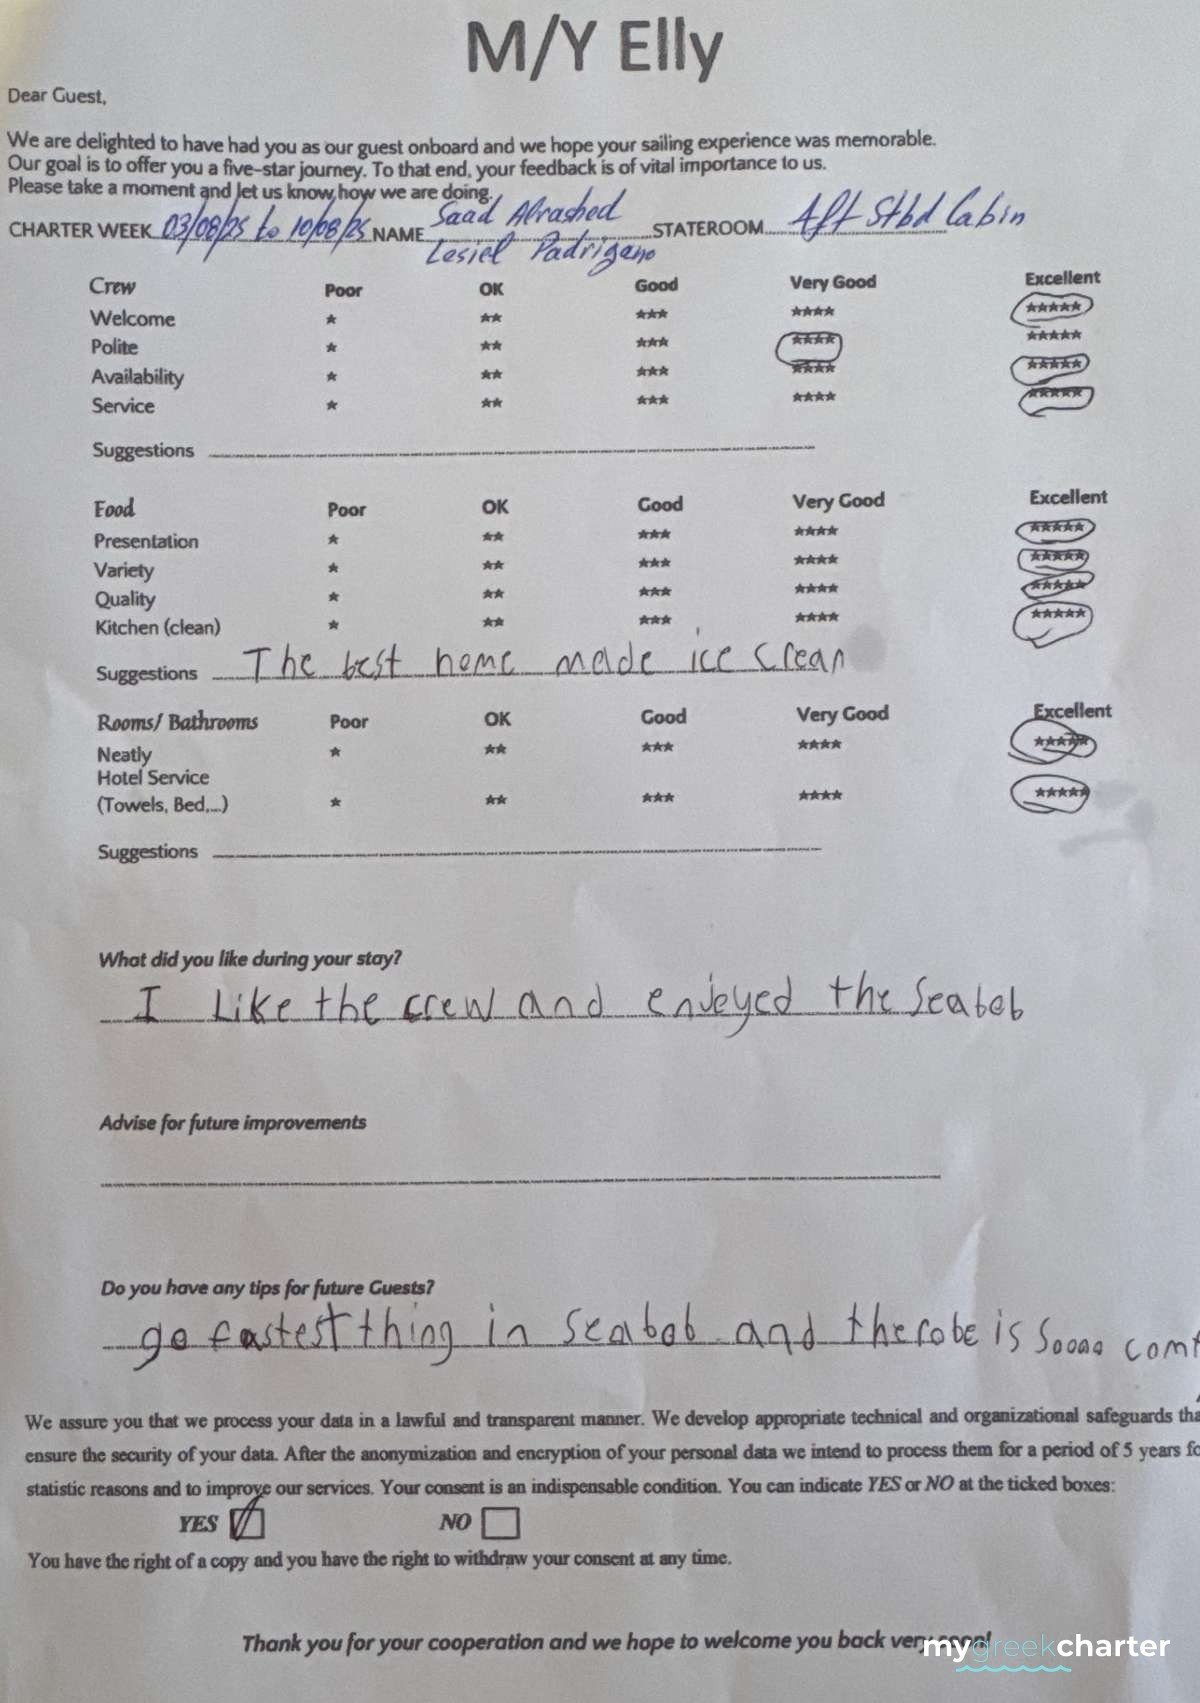 M/Y Elly
Dear Guest,
We are delighted to have had you as our guest onboard and we hope your sailing experience was memorable.
Our goal is to offer you a five-star journey. To that end, your feedback is of vital importance to us.
Please take a moment and let us know how we are doing.
CHARTER WEEK 03/08/25 to 10/08/25 NAME Saad Alrashed STATEROOM Aft Stbd Cabin
Lesiel Padrigano
Crew Poor OK Good Very Good Excellent
Welcome * ** *** **** *****
Polite * ** *** **** *****
Availability * ** *** **** *****
Service * ** *** **** *****
Suggestions
Food Poor OK Good Very Good Excellent
Presentation * ** *** **** *****
Variety * ** *** **** *****
Quality * ** *** **** *****
Kitchen (clean) * ** *** **** *****
Suggestions The best home made ice crean
Rooms/ Bathrooms Poor OK Good Very Good Excellent
Neatly * ** *** **** *****
Hotel Service
(Towels, Bed,...) * ** *** **** *****
Suggestions
What did you like during your stay?
I like the crew and enjeyed the seabob
Advise for future improvements
Do you have any tips for future Guests?
go fastest thing in seabob and the robe is soooo comf
We assure you that we process your data in a lawful and transparent manner. We develop appropriate technical and organizational safeguards tha
ensure the security of your data. After the anonymization and encryption of your personal data we intend to process them for a period of 5 years fo
statistic reasons and to improve our services. Your consent is an indispensable condition. You can indicate YES or NO at the ticked boxes:
YES NO
You have the right of a copy and you have the right to withdraw your consent at any time.
Thank you for your cooperation and we hope to welcome you back very soon!
mygreekcharter